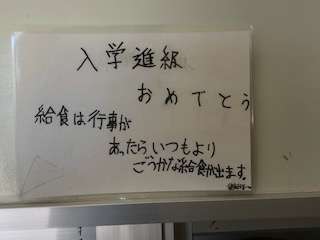 入学進級
おめでとう
給食は行事が
あったらいつもより
ごうかな給食が出ます。